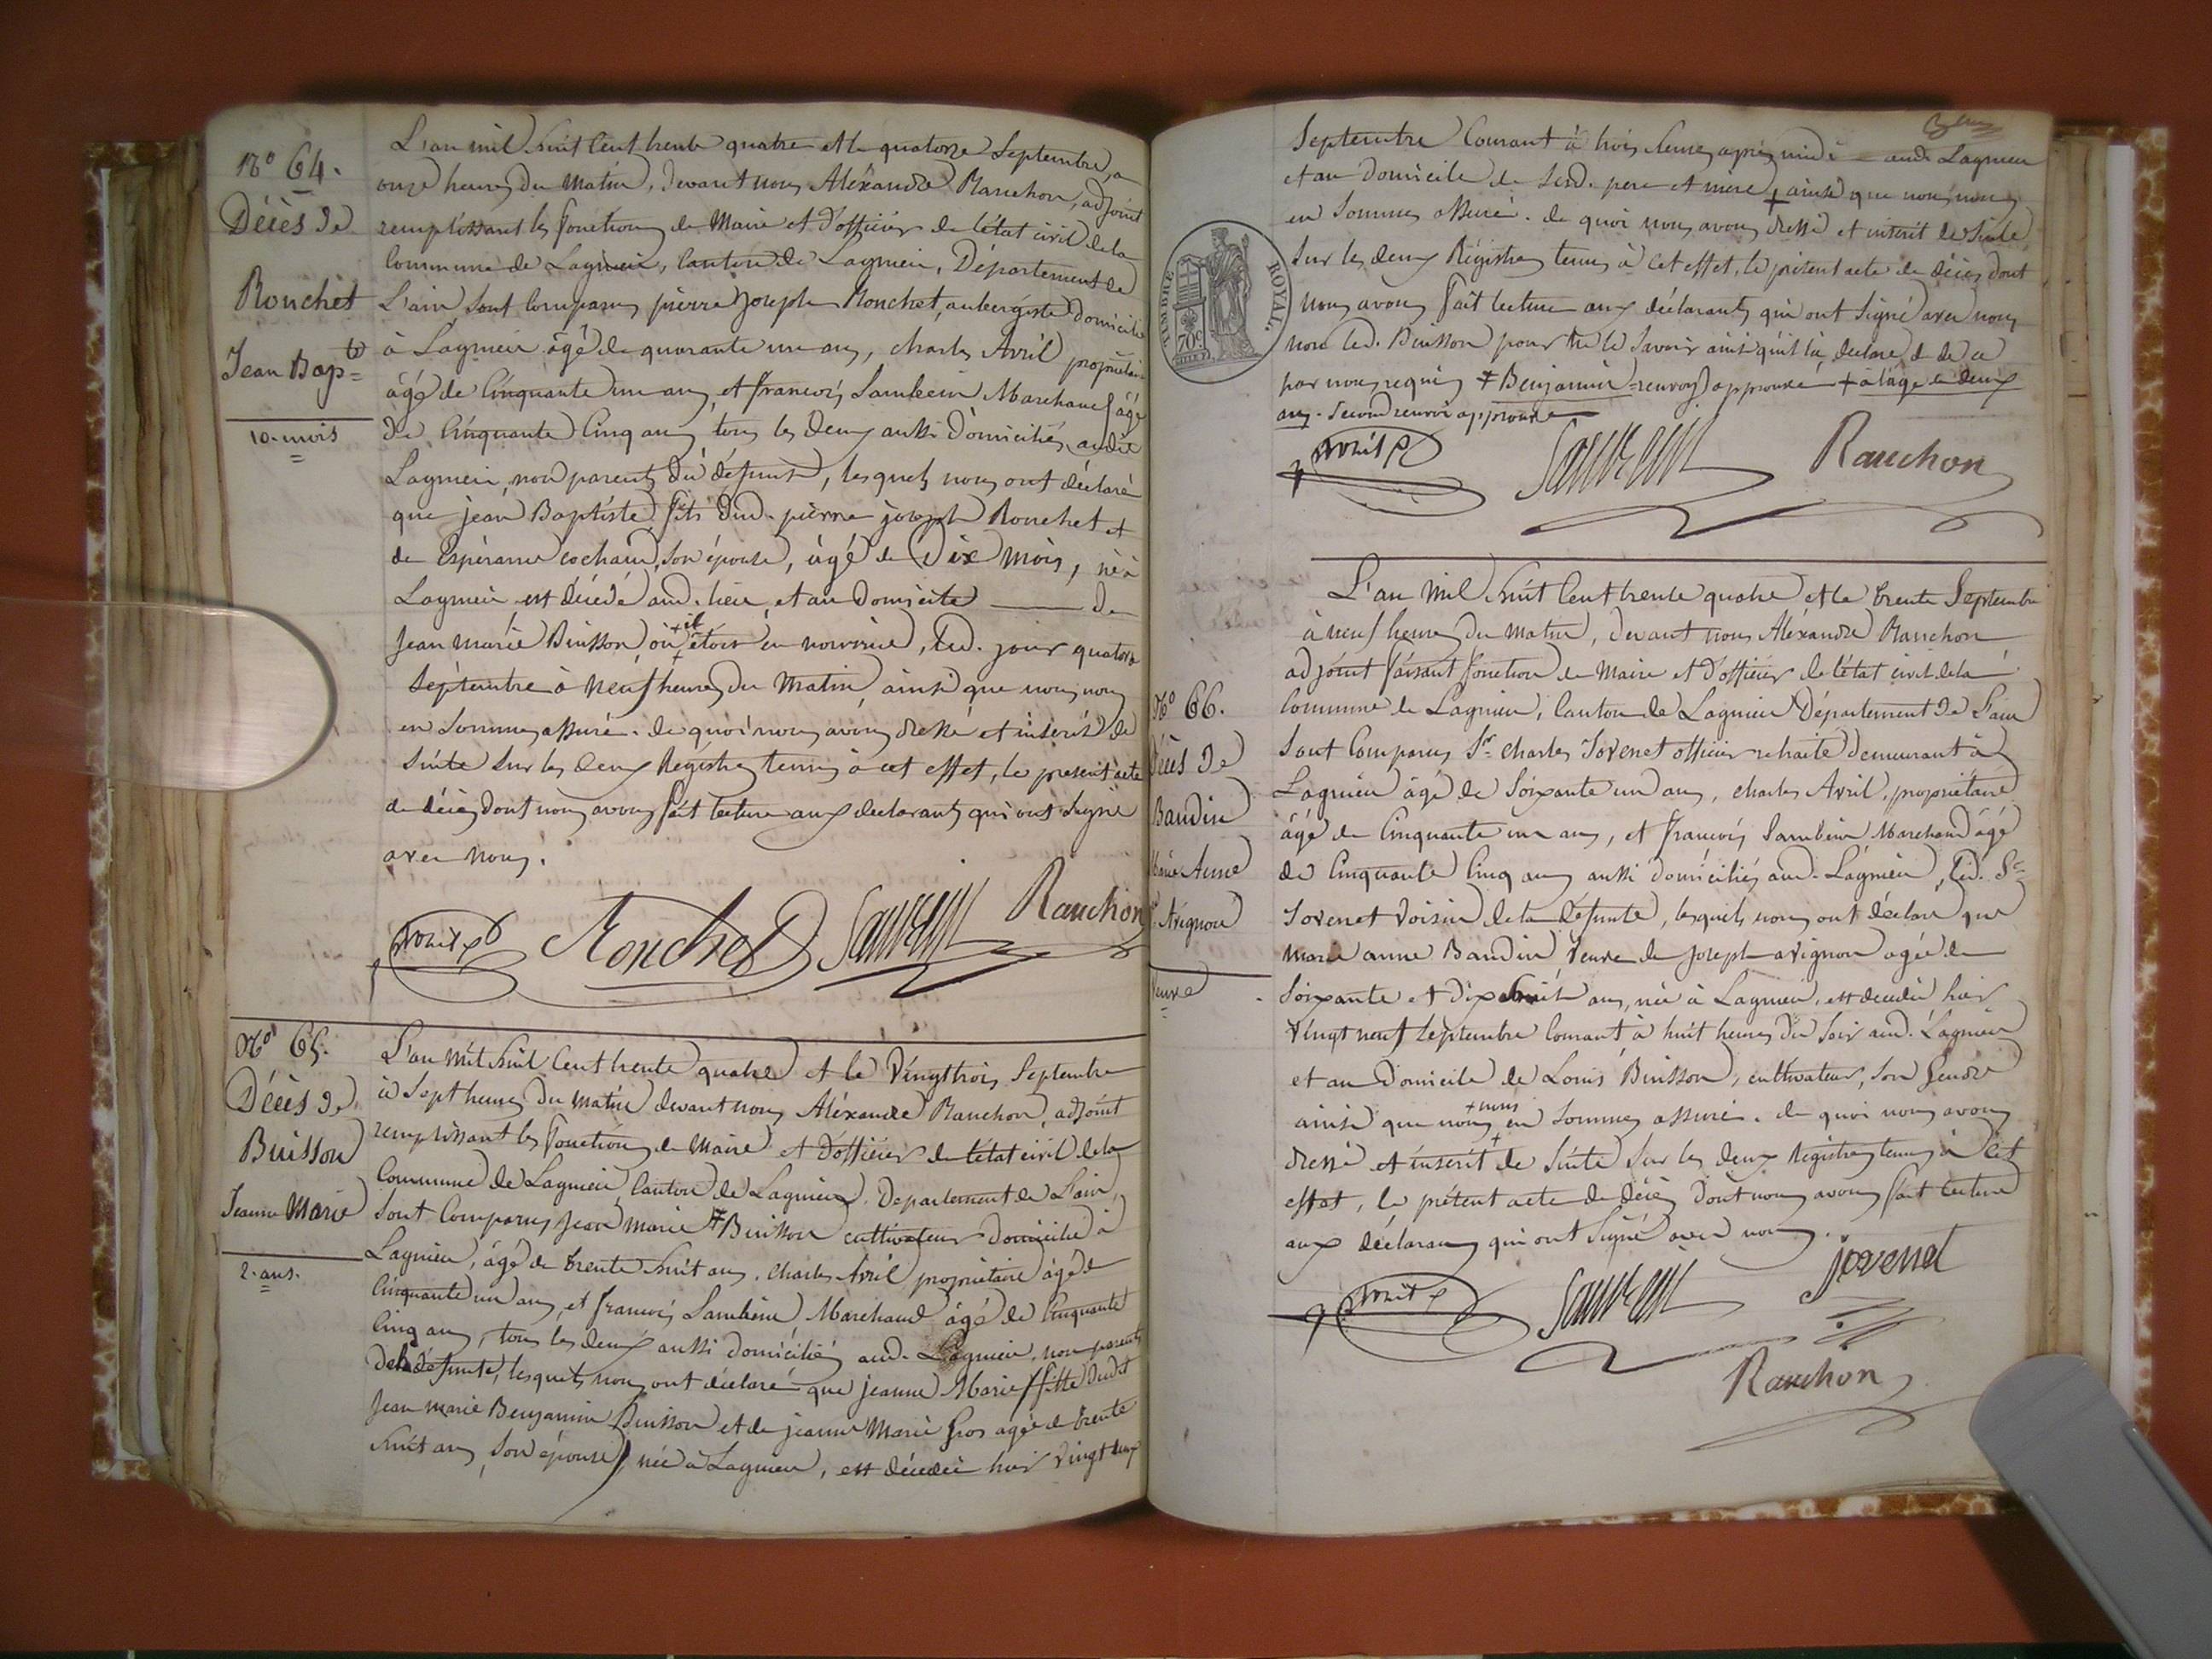 N° 64.
Décès de
Ronchet
Jean Bap.te
10. mois
L'an mil huit cent trente quatre et le quatorze Septembre, à
onze heures du matin, devant nous Aléxandre Rauchon, adjoint
remplissant les fonctions de Maire et d'officier de l'état civil de la
commune de Lagnieu, canton de Lagnieu, Département de
L'ain, sont comparus pierre Joseph Ronchet, aubergiste domicilié
à Lagnieu âgé de quarante un ans, charles Avril propriétaire
âgé de cinquante un ans, et françois Sambein Marchand âgé
de cinquante cinq ans tous les deux aussi domiciliés audit
Lagnieu, non parents du défunt, lesquels nous ont déclaré
que jean Baptiste fils dud. pierre joseph Ronchet et
de Espérance cochard, son épouse, âgé de Dix mois, né à
Lagnieu est décédé aud. lieu, et au domicile de
Jean marie Buisson où + il étoit en nourrice, led. jour quatorze
Septembre à neuf heures du matin ainsi que nous nous
en sommes assuré. de quoi nous avons dressé et inscrit de
suite sur les deux Régistres tenus à cet effet, le présent acte
de décès dont nous avons fait lecture aux déclarants qui ont signé
avec nous.
Avril Ronchet Rauchon
N° 65.
Décès de
Buisson
Jeanne Marie
2. ans.
L'an mil huit cent trente quatre et le vingt trois Septembre
à sept heures du matin devant nous Aléxandre Rauchon, adjoint
remplissant les fonctions de Maire et d'officier de l'état civil de la
commune de Lagnieu, canton de Lagnieu, Département de L'ain,
sont comparus jean marie ‡ Buisson cultivateur domicilié à
Lagnieu, âgé de trente huit ans, charles Avril propriétaire âgé de
cinquante un ans, et françois Sambein Marchand âgé de cinquante
cinq ans, tous les deux aussi domiciliés aud. Lagnieu, non parents
de la défunte, lesquels nous ont déclaré que jeanne Marie fille dudit
Jean marie Benjamin Buisson et de jeanne Marie Gros agée de trente
huit ans, son épouse, née à Lagnieu, est décédée hier vingt deux
Septembre courant à trois heures après midi aud. Lagnieu
et au domicile de sesd. pere et mère + ainsi que nous nous
en sommes assuré. de quoi nous avons dressé et inscrit de suite
sur les deux Régistres tenus à cet effet, le présent acte de décès dont
nous avons fait lecture aux déclarants qui ont signé avec nous
non led. Buisson pour ne le savoir ainsi qu'il l'a déclaré, de ce
par nous requis ‡ Benjamin = renvoy approuvé + à l'âge de deux
ans. second renvoi approuvé
TIMBRE ROYAL.
70c.
Avril Rauchon
N° 66.
Décès de
Baudin
Marie Anne
Avignon
Veuve
L'an mil huit cent trente quatre et le trente Septembre
à neuf heures du matin, devant nous Aléxandre Rauchon
adjoint faisant fonction de Maire et d'officier de l'état civil de la
commune de Lagnieu, canton de Lagnieu Département de L'ain
sont comparus Sr. charles Jovenet officier retraité demeurant à
Lagnieu âgé de soixante un ans, charles Avril, propriétaire
âgé de cinquante un ans, et françois Sambein Marchand âgé
de cinquante cinq ans aussi domiciliés aud. Lagnieu, led. Sr.
Jovenet voisin de la défunte, lesquels nous ont déclaré que
marie anne Baudin veuve de joseph avignon agée de
soixante et dix huit ans, née à Lagnieu, est décédée hier
vingt neuf septembre courant à huit heures du soir aud. Lagnieu
et au domicile de Louis Buisson, cultivateur, son gendre
ainsi que nous + nous en sommes assuré. de quoi nous avons
dressé et inscrit de suite sur les deux Régistres tenus à cet
effet, le présent acte de décès dont nous avons fait lecture
aux déclarans qui ont signé avec nous.
Avril jovenet
Rauchon